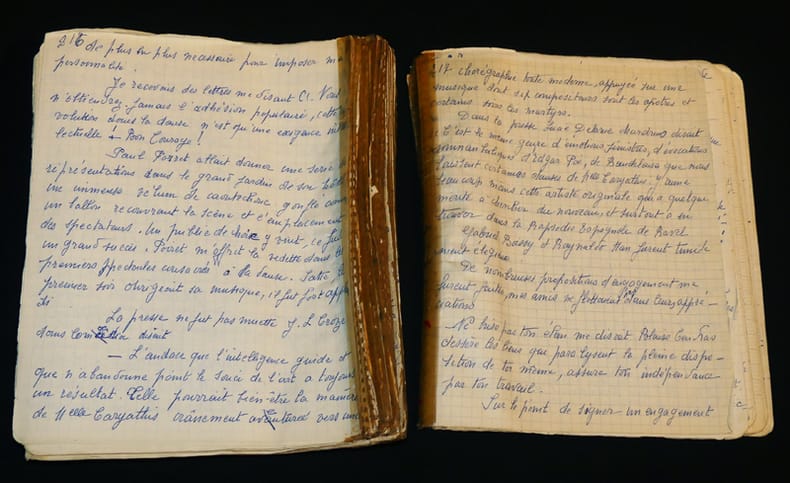 216 de plus en plus necessaire pour imposer ma
personnalité.
Je recevais des lettres me disant Ct. Vous
n'obtiendrez jamais l'adhésion populaire, cette
volution dans la danse n'est qu'une exigence
lectuelle. Bon Courage!
Paul Poiret allait donner une serie
représentations dans le grand jardin de son
une immense velum de caoutchouc gonflé comme
un ballon recouvrant la scène et l'emplacement
des spectateurs. Un public de choix y vint, ce fut
un grand succès. Poiret m'offrit la vedette dans
premiers spectacles consacrés à la danse. Satie,
premier soir dirigeait sa musique, il fut fort
di
La presse ne fut pas muette J. L. Croze
dans Comœdia disait
— L'audace que l'intelligence guide et
que n'abandonne point le souci de l'art a toujours
un résultat. Telle pourrait bien être la manière
de Melle Caryathis crânement aventurée vers une
217 chorégraphie toute moderne, appuyée sur une
musique dont six compositeurs sont les apôtres et
certains sont les martyrs.
Dans la presse Lucie Delarue Mardrus disait
C'est le même genre d'émotions sinistres, d'évocations
d'Edgar Poë, de Baudelaire que nous
certaines danses de Melle Caryathis. J'aime
beaucoup mieux cette artiste originale qui a quelque
mérite à tenter du nouveau et surtout a su
trouver dans la Rapsodie Espagnole de Ravel
Gabriel Bossy et Reynaldo Han furent
élogieux
De nombreuses propositions d'engagement me
furent faites, mes amis se flattaient dans leurs appré-
ciations
Ne brise pas ton élan me disait Blaise Cendras
desserre les liens que paralysent la pleine dispo-
sition de toi même, assure ton indépendance
par ton travail.
Sur le point de signer un engagement